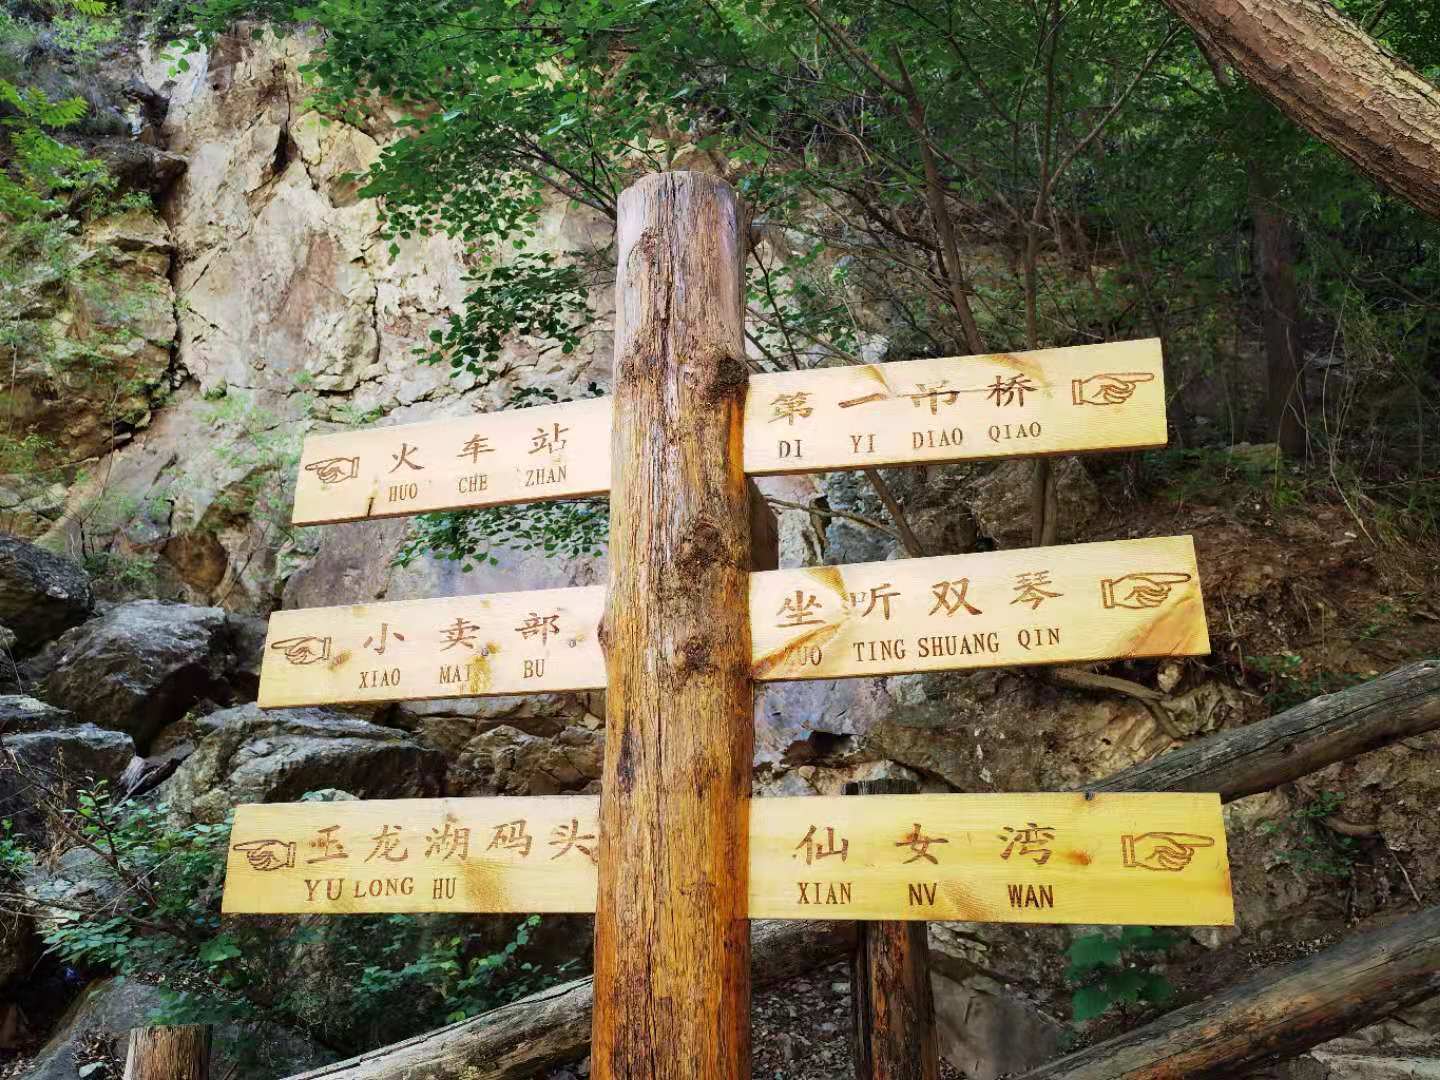 火车站
HUO CHE ZHAN
第一吊桥
DI YI DIAO QIAO
小卖部
XIAO MAI BU
坐听双琴
ZUO TING SHUANG QIN
玉龙湖码头
YU LONG HU
仙女湾
XIAN NV WAN